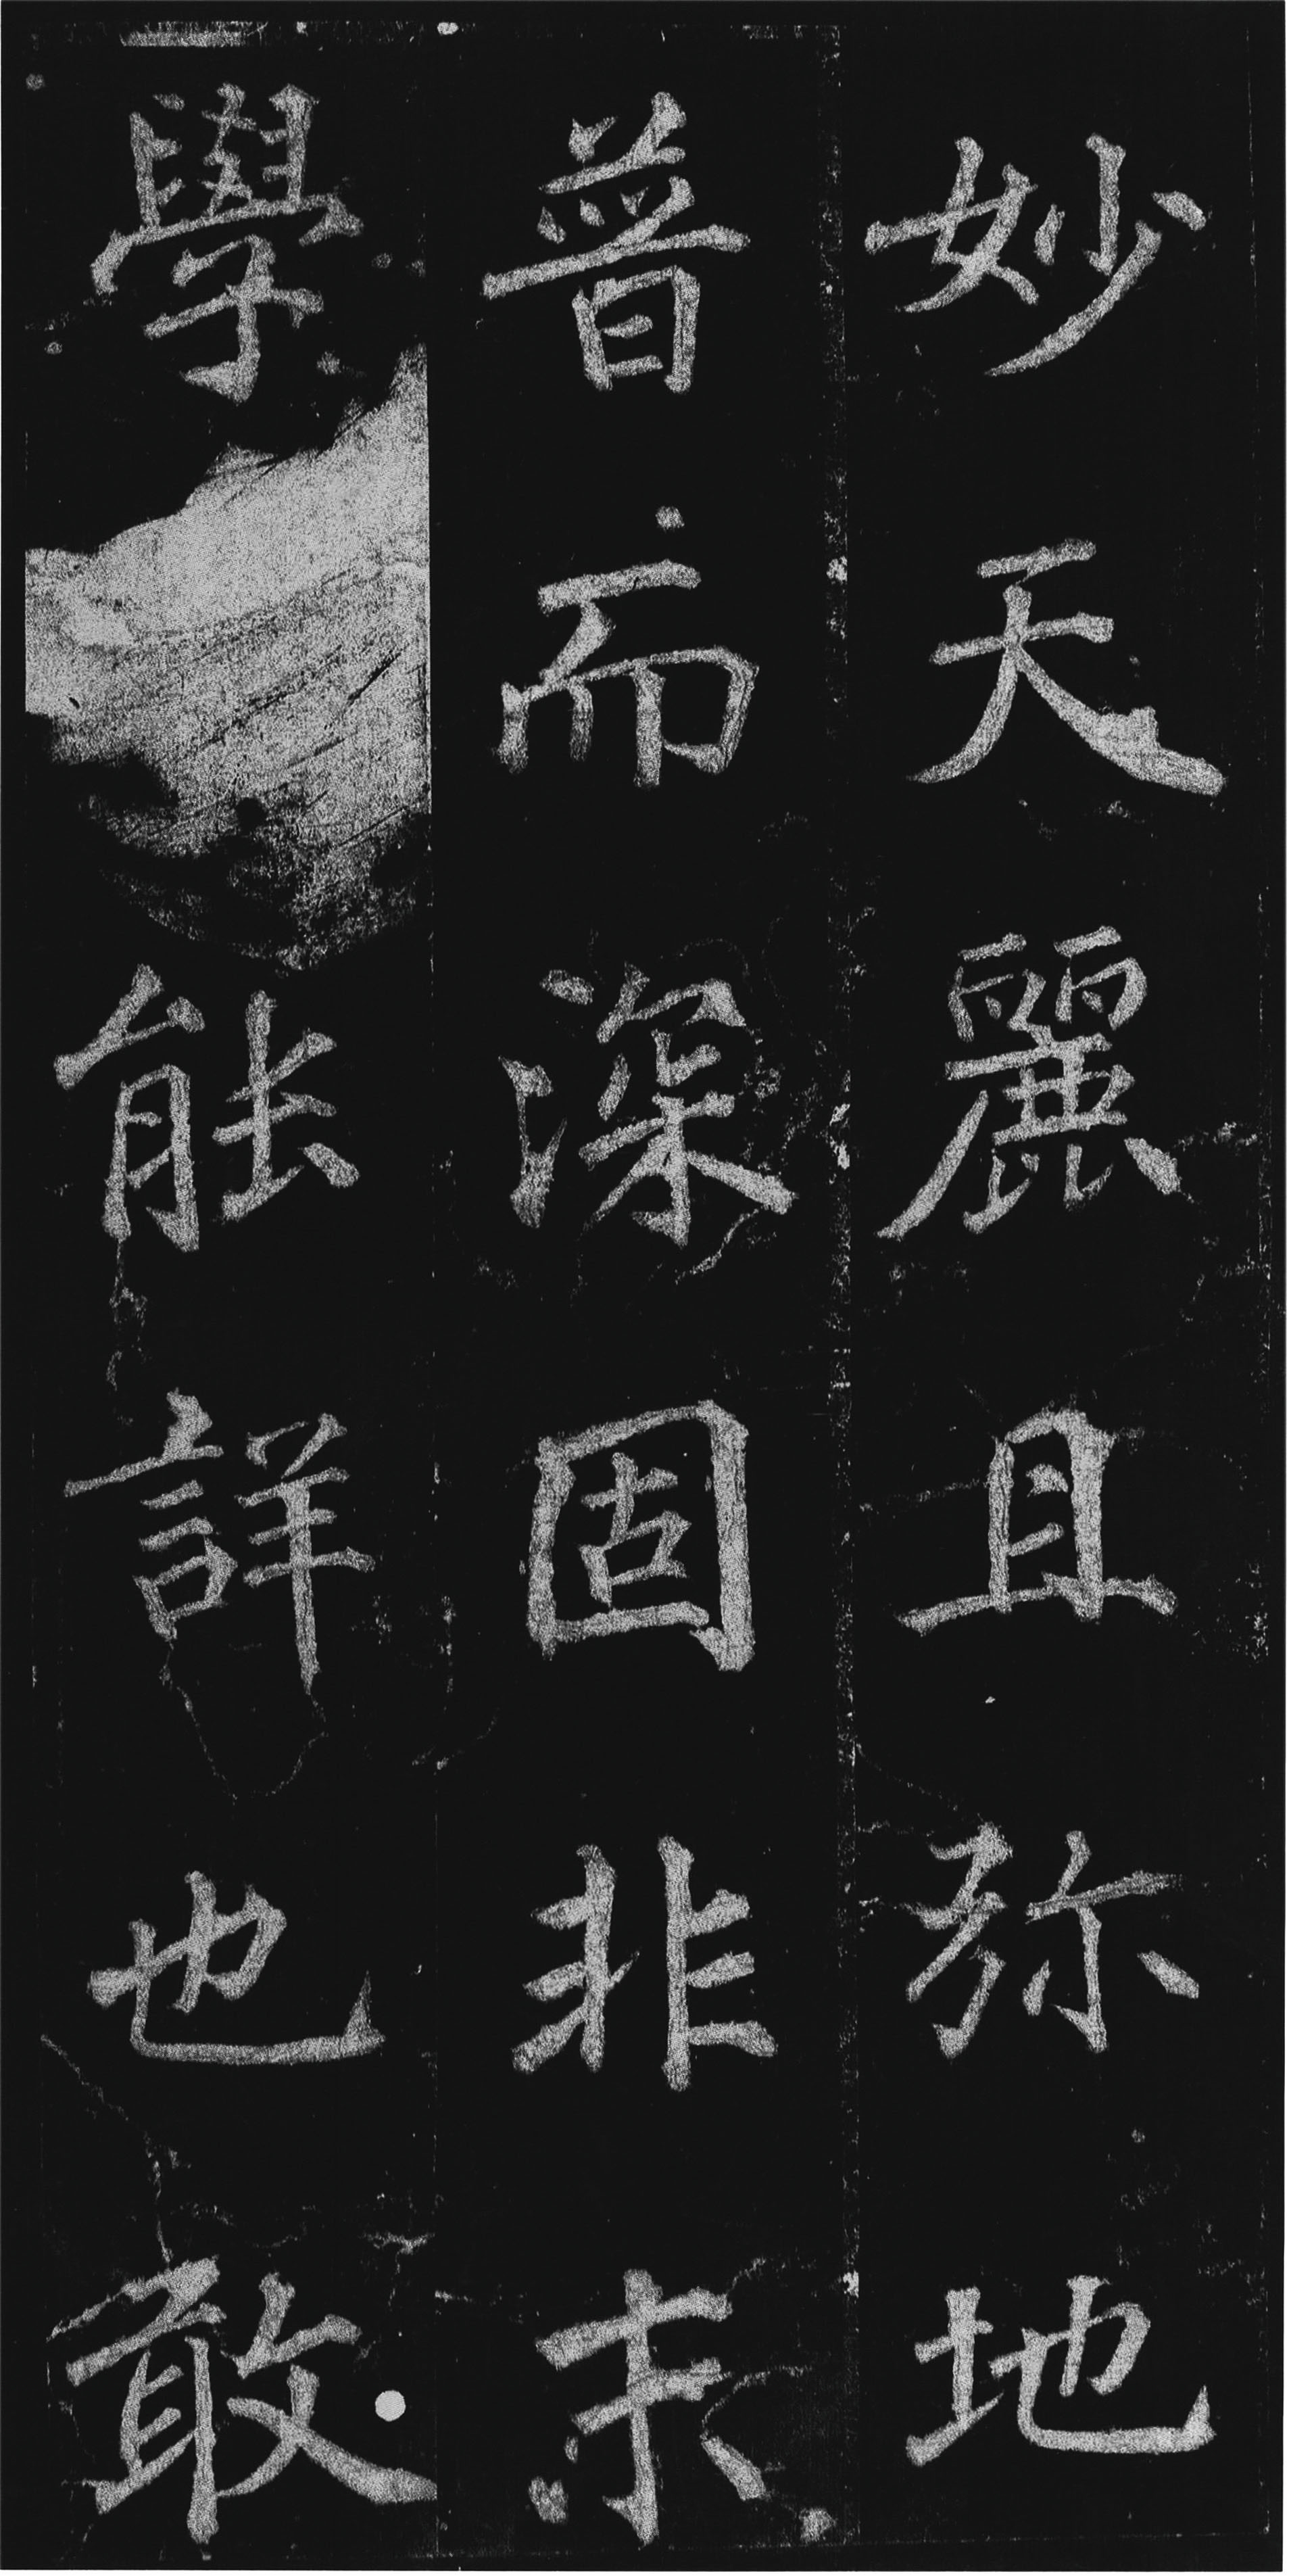 妙天麗且弥地
普而深固非末
學能詳也敢